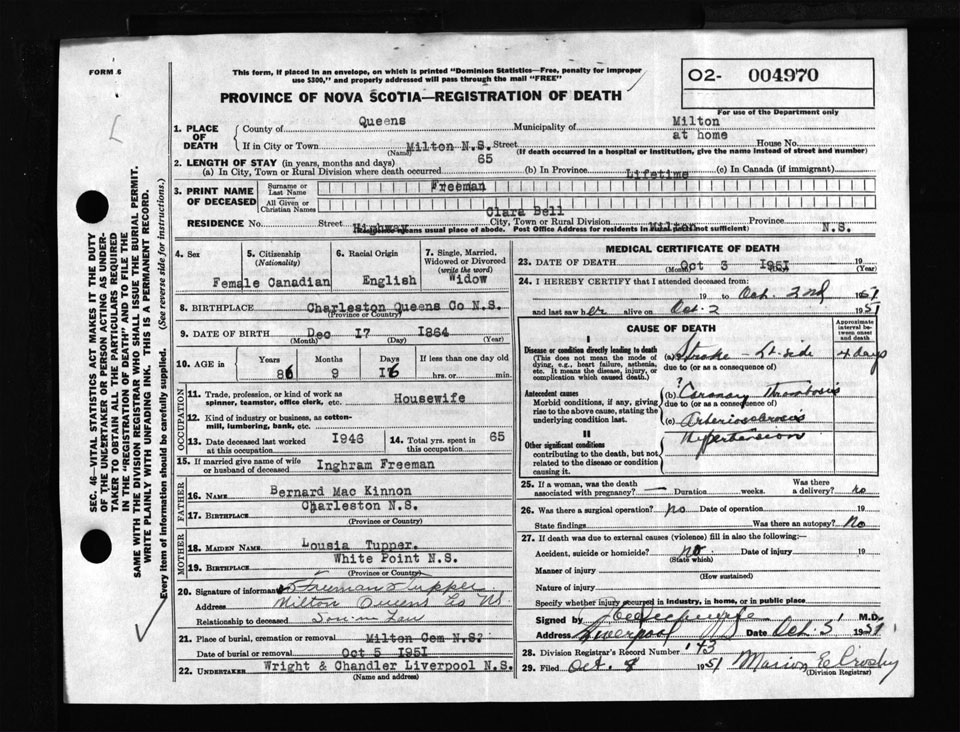 FORM 6
This form, if placed in an envelope, on which is printed "Dominion Statistics—Free, penalty for improper
use $300," and properly addressed will pass through the mail "FREE"
PROVINCE OF NOVA SCOTIA—REGISTRATION OF DEATH
O2- 004970
For use of the Department only
SEC. 46—VITAL STATISTICS ACT MAKES IT THE DUTY
OF THE UNDERTAKER OR PERSON ACTING AS UNDER-
TAKER TO OBTAIN ALL THE PARTICULARS REQUIRED
IN THE "REGISTRATION OF DEATH" AND TO FILE THE
SAME WITH THE DIVISION REGISTRAR WHO SHALL ISSUE THE BURIAL PERMIT.
WRITE PLAINLY WITH UNFADING INK. THIS IS A PERMANENT RECORD.
Every item of information should be carefully supplied. (See reverse side for instructions.)
1. PLACE OF DEATH
County of Queens Municipality of Milton
at home
If in City or Town Milton N.S. Street House No.
(Name) (If death occurred in a hospital or institution, give the name instead of street and number)
2. LENGTH OF STAY (in years, months and days)
(a) In City, Town or Rural Division where death occurred 65 (b) In Province Lifetime (c) In Canada (if immigrant)
3. PRINT NAME OF DECEASED
Surname or Last Name Freeman
All Given or Christian Names Clara Bell
RESIDENCE No. Street Highway City, Town or Rural Division Milton Province N.S.
(Residence means usual place of abode. Post Office Address for residents in rural parts not sufficient)
4. Sex Female
5. Citizenship (Nationality) Canadian
6. Racial Origin English
7. Single, Married, Widowed or Divorced (write the word) Widow
8. BIRTHPLACE Charleston Queens Co N.S.
(Province or Country)
9. DATE OF BIRTH Dec 17 1864
(Month) (Day) (Year)
10. AGE in Years Months Days If less than one day old
86 9 16 hrs. or min.
OCCUPATION
11. Trade, profession, or kind of work as spinner, teamster, office clerk, etc. Housewife
12. Kind of industry or business, as cotten-mill, lumbering, bank, etc.
13. Date deceased last worked at this occupation 1946
14. Total yrs. spent in this occupation 65
15. If married give name of wife or husband of deceased Inghram Freeman
FATHER
16. NAME Bernard Mac Kinnon
17. BIRTHPLACE Charleston N.S.
(Province or Country)
MOTHER
18. MAIDEN NAME Lousia Tupper.
19. BIRTHPLACE White Point N.S.
(Province or Country)
20. Signature of informant Freeman Tupper
Address Milton Queens Co NS
Relationship to deceased Son in Law
21. Place of burial, cremation or removal Milton Cem N.S?
Date of burial or removal Oct 5 1951
22. UNDERTAKER Wright & Chandler Liverpool N.S.
(Name and address)
MEDICAL CERTIFICATE OF DEATH
23. DATE OF DEATH Oct 3 1951 19
(Month) (Day) (Year)
24. I HEREBY CERTIFY that I attended deceased from:
19 to Oct. 2nd 1951
and last saw her alive on Oct. 2 1951
CAUSE OF DEATH
Approximate interval between onset and death
I
Disease or condition directly leading to death
(This does not mean the mode of dying, e.g., heart failure, asthenia, etc. It means the disease, injury, or complication which caused death.)
(a) Stroke – Lt side 4 days
due to (or as a consequence of)
Antecedent causes
Morbid conditions, if any, giving rise to the above cause, stating the underlying condition last.
(b) ? Coronary thrombosis
due to (or as a consequence of)
(c) Arteriosclerosis
II
Other significant conditions
contributing to the death, but not related to the disease or condition causing it.
Hypertension
25. If a woman, was the death associated with pregnancy? — Duration weeks. Was there a delivery? no
26. Was there a surgical operation? no Date of operation 19
State findings Was there an autopsy? No
27. If death was due to external causes (violence) fill in also the following:—
Accident, suicide or homicide? no. Date of injury 19
(State which)
Manner of injury
(How sustained)
Nature of injury
Specify whether injury occurred in industry, in home, or in public place
Signed by M.D.
Address Liverpool NS Date Oct. 5 1951
28. Division Registrar's Record Number 143
29. Filed Oct. 8 1951 Marion E Crosby
(Division Registrar)